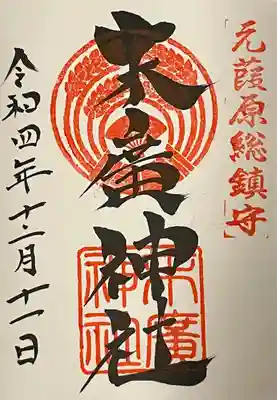 元葭原総鎮守
末廣神社
末廣
神社
令和四年十二月十一日